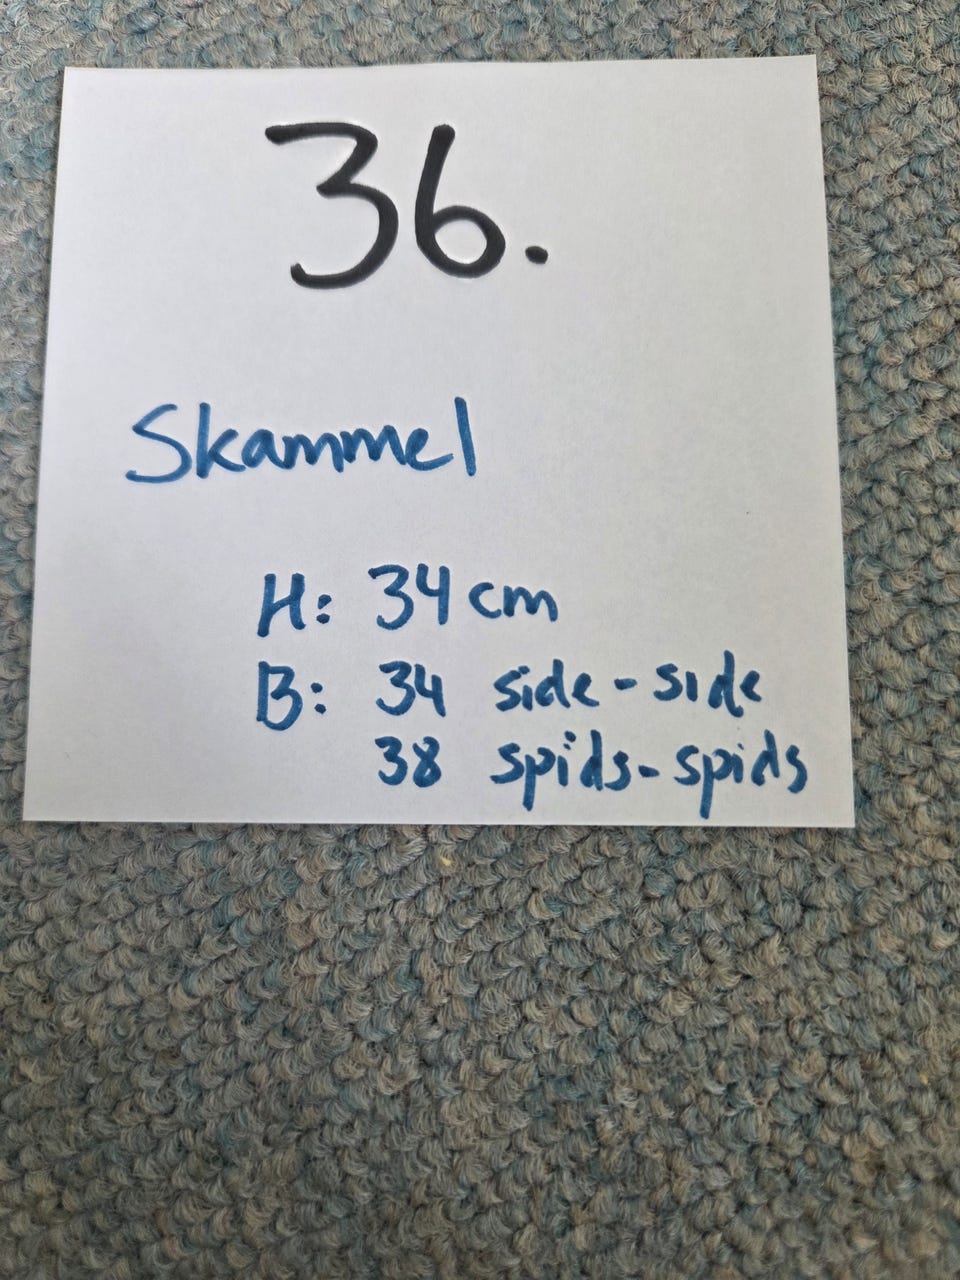 36.
Skammel
H: 34 cm
B: 34 side-side
38 spids-spids